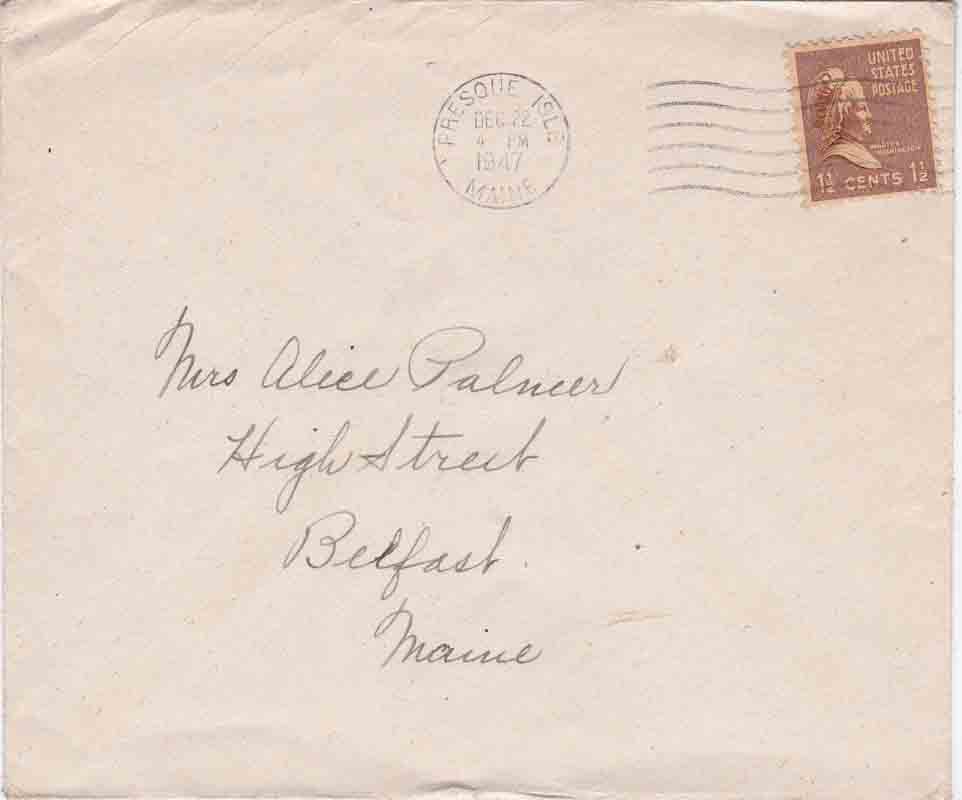 PRESQUE ISLE
DEC 22
4 PM
1947
MAINE
UNITED
STATES
POSTAGE
MARTHA
WASHINGTON
1½ CENTS 1½
Mrs Alice Palmer
High Street
Belfast.
Maine